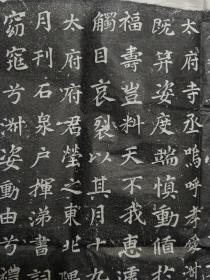 太府寺丞嗚呼孝愛淑
既笄姿度端慎動循於
福壽豈料天不我惠遽
觸目哀裂以其月十九
太府府君瑩之東北隅
月刊石泉户揮涕書詞
窈窕兮淋姿動由兮禮